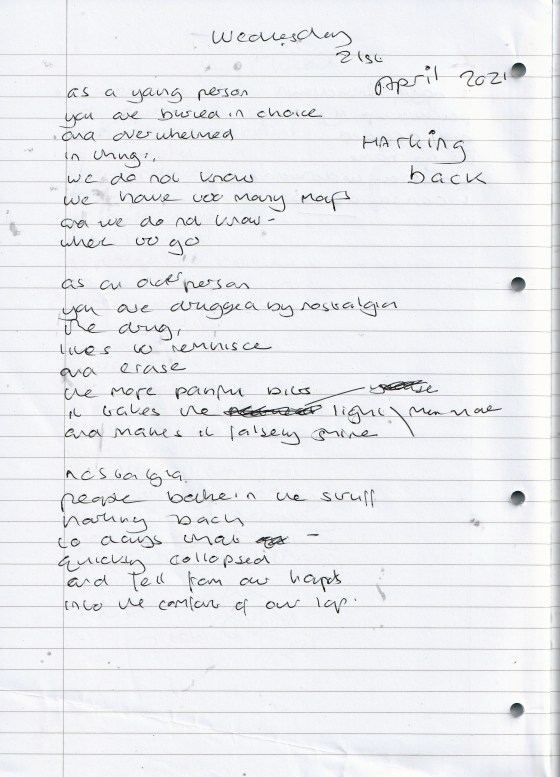 Wednesday
21st
April 2021
Harking
back
as a young person
you are buried in choice
and overwhelmed
in things,
we do not know
we have too many maps
and we do not know -
where to go
as an older person
you are drugged by nostalgia
the drug,
likes to reminisce
and erase
the more painful bits
it takes the light
and makes it falsely shine
nostalgia
people bathe in the stuff
harking back
to days that -
quickly collapsed
and fell from our hands
into the comfort of our lap.